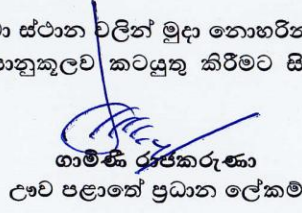 ස්ථාන වලින් මුදා නොහරින
කටයුතු කිරීමට
ගාමිණී රාජකරුණා
ඌව පළාතේ ප්‍රධාන ලේකම්